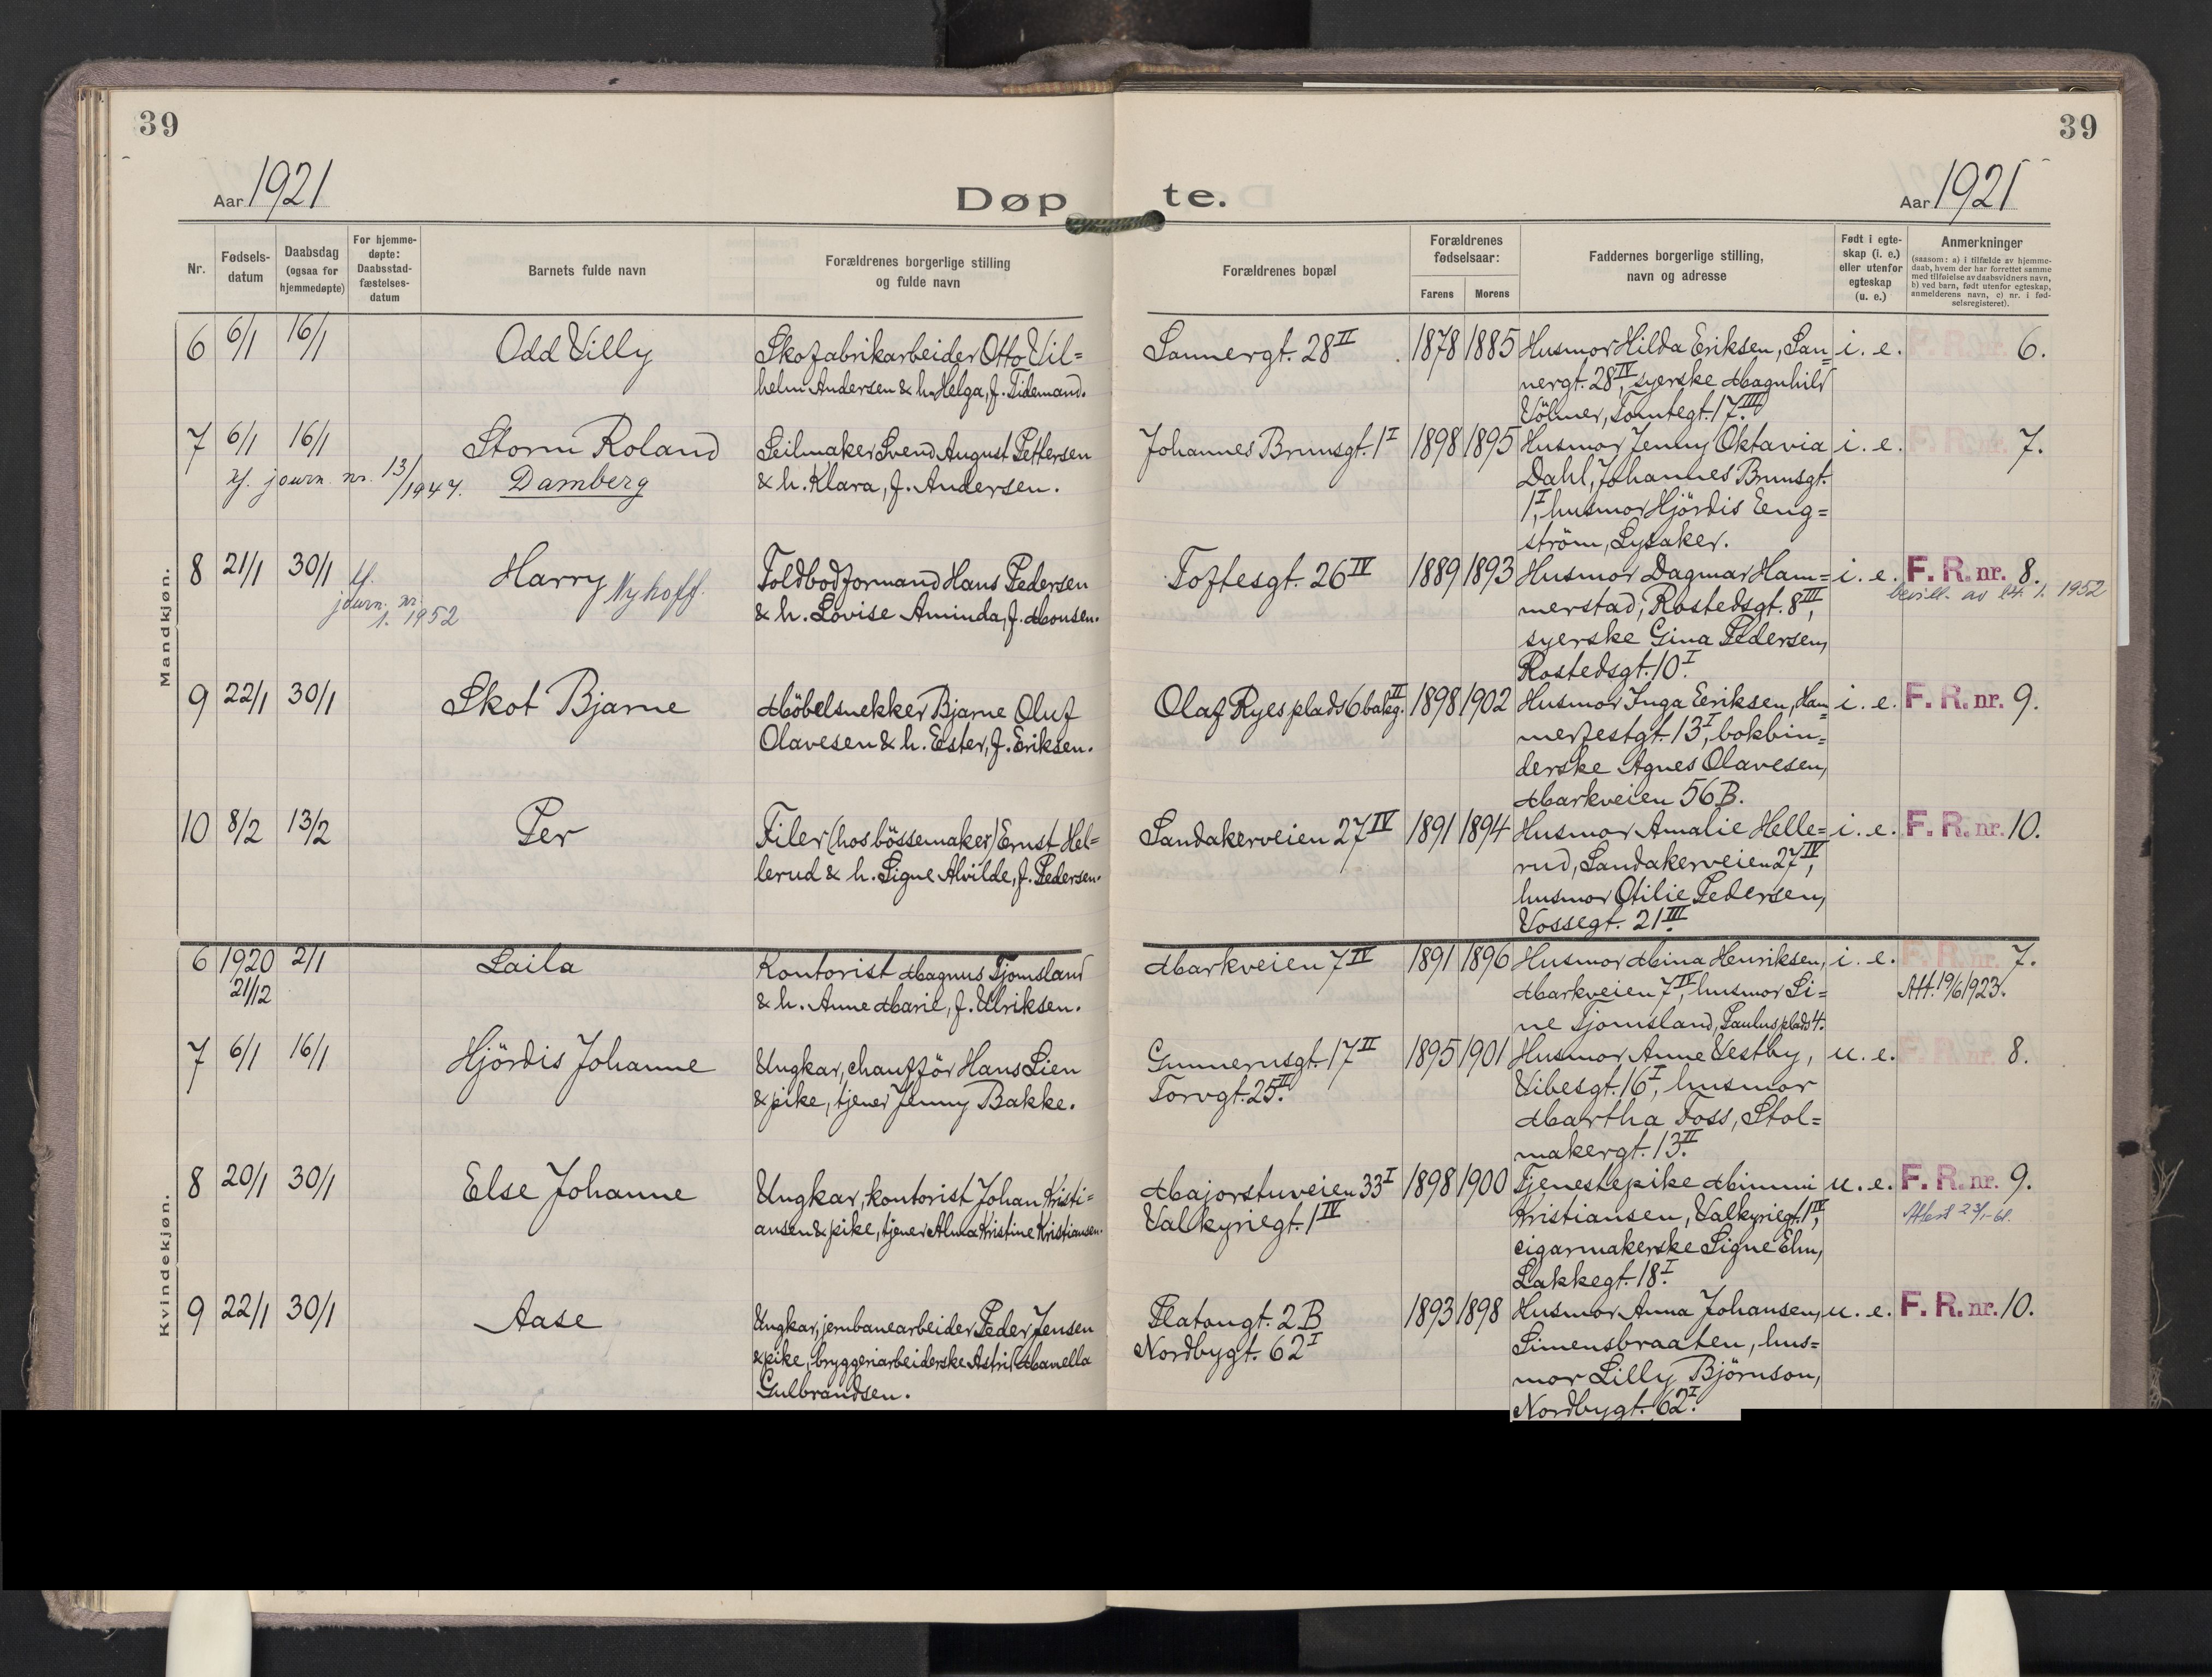 39
39
Aar 1921
Døpte.
Aar 1921
Nr.
Fødsels-
datum
Daabsdag
(ogsaa for
hjemmedøpte)
For hjemme-
døpte:
Daabsstad-
fæstelses-
datum
Barnets fulde navn
Forældrenes borgerlige stilling
og fulde navn
Forældrenes bopæl
Forældrenes
fødselsaar:
Farens
Morens
Faddernes borgerlige stilling,
navn og adresse
Født i egte-
skap (i. e.)
eller utenfor
egteskap
(u. e.)
Anmerkninger
(saasom: a) i tilfælde av hjemme-
daab, hvem der har forrettet samme
med tilføielse av daabsvidners navn,
b) ved barn, født utenfor egteskap,
anmelderens navn, c) nr. i fød-
selsregisteret).
Mandkjøn.
6 6/1 16/1 Odd Villy
Skofabrikarbeider Otto Vil=
helm Andersen & h. Helga, f. Tidemand.
Sannergt. 28 II 1878 1885
Husmor Hilda Eriksen, San=
nergt. 28 IV, syerske Magnhild
Völmer, Tomtegt. 17 III.
i. e. 6.
7 6/1 16/1 Storm Roland
Damberg
kf. journ. nr. 13/1947.
Seilmaker Svend August Pettersen
& h. Klara, f. Andersen.
Johannes Brunsgt. 1 I 1898 1895
Husmor Jenny Oktavia
Dahl, Johannes Brunsgt.
1 I, husmor Hjördis Eeng=
ström, Lysaker.
i. e. 7.
8 21/1 30/1 Harry Nyhoff.
kf.
journ. nr.
1. 1952
Toldbodformand Hans Pedersen
& h. Lovise Aminda, f. Monsen.
Toftesgt. 26 IV 1889 1893
Husmor Dagmar Ham=
merstad, Rostedsgt. 8 III,
syerske Gina Pedersen,
Rostedsgt. 10 I
i. e. F. R. nr. 8.
bevill. av 14. 1. 1952
9 22/1 30/1 Skot Bjarne
Möbelsnekker Bjarne Oluf
Olavesen & h. Ester, f. Eriksen.
Olaf Ryes plads 6 bakg. II 1898 1902
Husmor Inga Eeriksen, Ham=
merfestgt. 13 I, bokbin=
derske Agnes Olavesen,
Markveien 56 B.
i. e. F. R. nr. 9.
10 8/2 13/2 Per
Filer (hos bössemaker) Ernst Hel=
lerud & h. Signe Alvilde, f. Pedersen.
Sandakerveien 27 IV 1891 1894
Husmor Amalie Helle=
rud, Sandakerveien 27 IV,
husmor Otilie Pedersen,
Vossegt. 21 III.
i. e. F. R. nr. 10.
Kvindekjøn.
6 1920 21/12 2/1 Laila
Kontorist Magnus Tjomsland
& h. Anne Marie, f. Ulriksen.
Markveien 7 IV 1891 1896
Husmor Mina Henriksen,
Markveien 7 IV, husmor Si=
ne Tjomsland, Paulus plads 4.
i. e. F. R. nr. 7.
Att. 19/6 1923.
7 6/1 16/1 Hjördis Johanne
Ungkar, chaufför Hans Lien
& pike, tjener Jenny Bakke.
Gunnerusgt. 17 II
Torvgt. 25 II.
1895 1901
Husmor Anne Vestby,
Vibesgt. 16 I, husmor
Martha Foss, Stol=
makergt. 13 II.
u. e. F. R. nr. 8.
8 20/1 30/1 Else Johanne
Ungkar, kontorist Johan Kristi=
ansen & pike, tjener Alma Kristine Kristiansen.
Majorstuveien 33 I
Valkyriegt. 1 IV
1898 1900
Tjenestepike Mimmi
Kristiansen, Valkyriegt. 1 IV,
cigarmakerske Signe Elm,
Lakkegt. 18 I.
u. e. F. R. nr. 9.
9 22/1 30/1 Aase
Ungkar, jernbanearbeider Peder Jensen
& pike, bryggeriarbeiderske Astrid Manella
Gulbrandsen.
Platougt. 2 B
Nordbygt. 62 I
1893 1898
Husmor Anna Johansen,
Simensbraaten, hus=
mor Lilly Björnson,
Nordbygt. 62 I.
u. e. F. R. nr. 10.